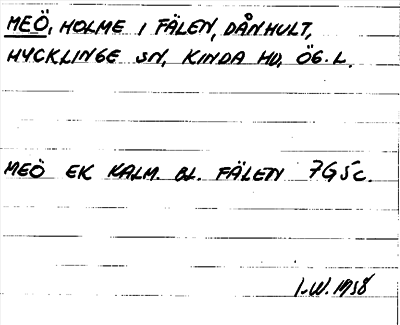 MEÖ, HOLME I FÄLEN, DÅNHULT,
HYCKLINGE SN, KINDA HD, ÖG. L.
MEÖ EK KALM. BL. FÄLEN 7G5c.
I.W. 1958